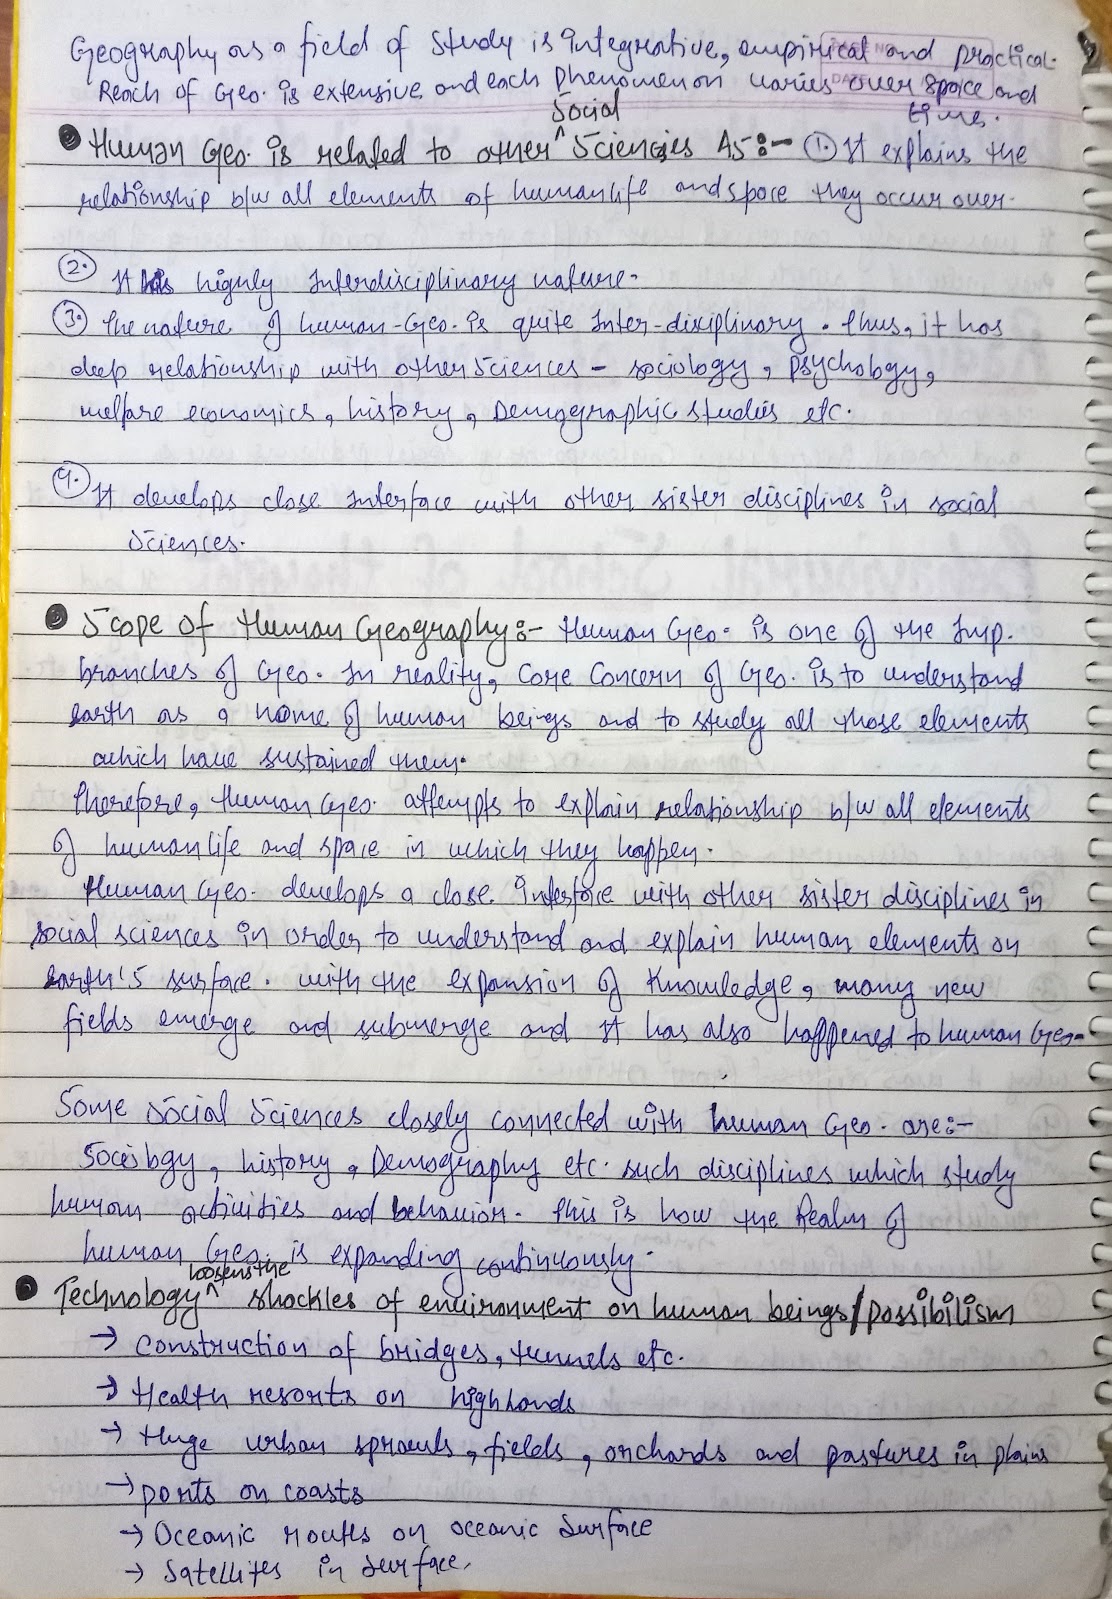 Geography as a field of study is integrative, empirical and practical.
Reach of Geo. is extensive and each phenomenon varies over space and
time.
Social
● Human Geo. is related to other ^ Sciences As:- ①. It explains the
relationship b/w all elements of human life and space they occur over.
②. It is highly interdisciplinary nature.
③. The nature of human-Geo. is quite inter-disiplinary. Thus, it has
deep relationship with other sciences - sociology, psychology,
welfare economics, history, Demographic studies etc.
④. It develops close interface with other sister disciplines in social
sciences.
● Scope of Human Geography:- Human Geo. is one of the Imp.
branches of Geo. In reality, Core Concern of Geo. is to understand
earth as a home of human beings and to study all those elements
which have sustained them.
Therefore, Human Geo. attempts to explain relationship b/w all elements
of human life and space in which they happen.
Human Geo. develops a close interface with other sister disciplines in
social sciences in order to understand and explain human elements on
earth's surface. with the expansion of Knowledge, many new
fields emerge and submerge and It has also happened to human Geo.
Some social sciences closely connected with human Geo. are:-
Sociology, history, Demography etc. such disciplines which study
human activities and behavior. This is how the Realm of
human Geo. is expanding continuously.
loosens the
● Technology ^ shackles of environment on human beings/possibilism
→ Construction of bridges, tunnels etc.
→ Health resorts on highlands
→ Huge urban sprawls, fields, orchards and pastures in plains
→ ports on coasts
→ Oceanic routes on oceanic surface
→ Satellites in surface.